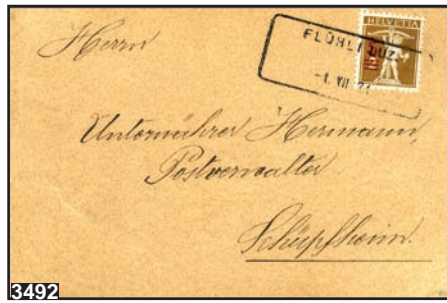 HELVETIA
FLÜHLI (LUZ.
-1. VII. 21
Herrn
Unternährer Hermann,
Postverwalter
Schüpfheim.
3492